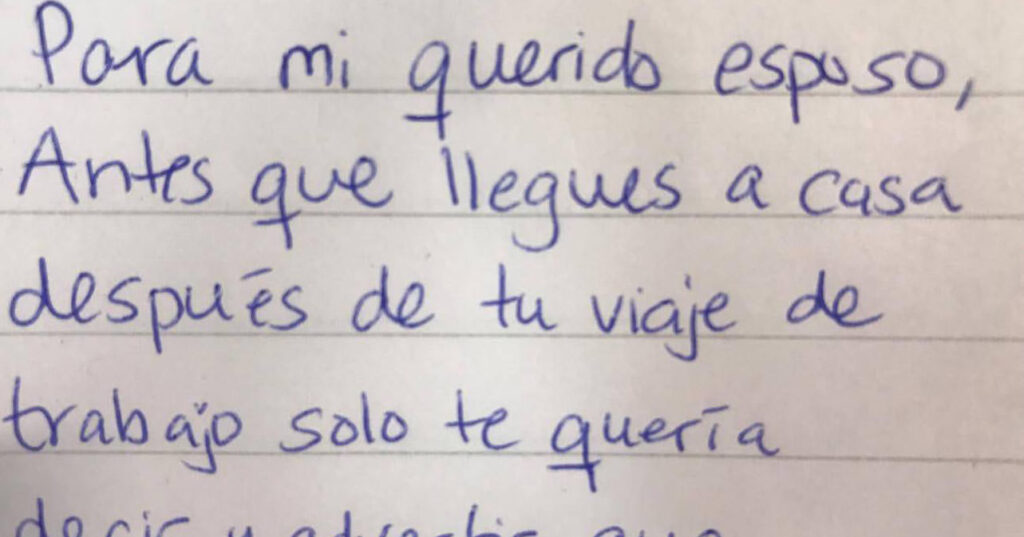 Para mi querido esposo,
Antes que llegues a casa
después de tu viaje de
trabajo solo te quería
decir y advertir que